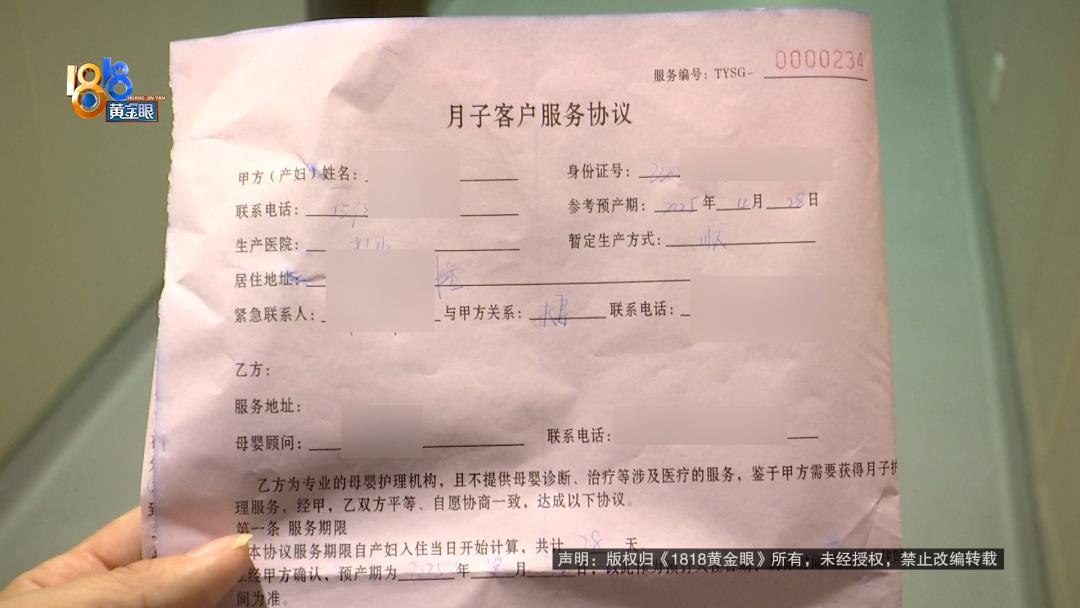 1818
HUANG JIN YAN
黄金眼
服务编号：TYSG- 0000234
月子客户服务协议
甲方（产妇）姓名： 身份证号：
联系电话： 参考预产期：2025年 4月 28日
生产医院： 暂定生产方式：顺
居住地址：
紧急联系人： 与甲方关系：夫妻 联系电话：
乙方：
服务地址：
母婴顾问： 联系电话：
乙方为专业的母婴护理机构，且不提供母婴诊断、治疗等涉及医疗的服务，鉴于甲方需要获得月子护
理服务，经甲，乙双方平等、自愿协商一致，达成以下协议。
第一条 服务期限
本协议服务期限自产妇入住当日开始计算，共计 28 天
经甲方确认，预产期为 2025 年 月
间为准。
声明：版权归《1818黄金眼》所有，未经授权，禁止改编转载